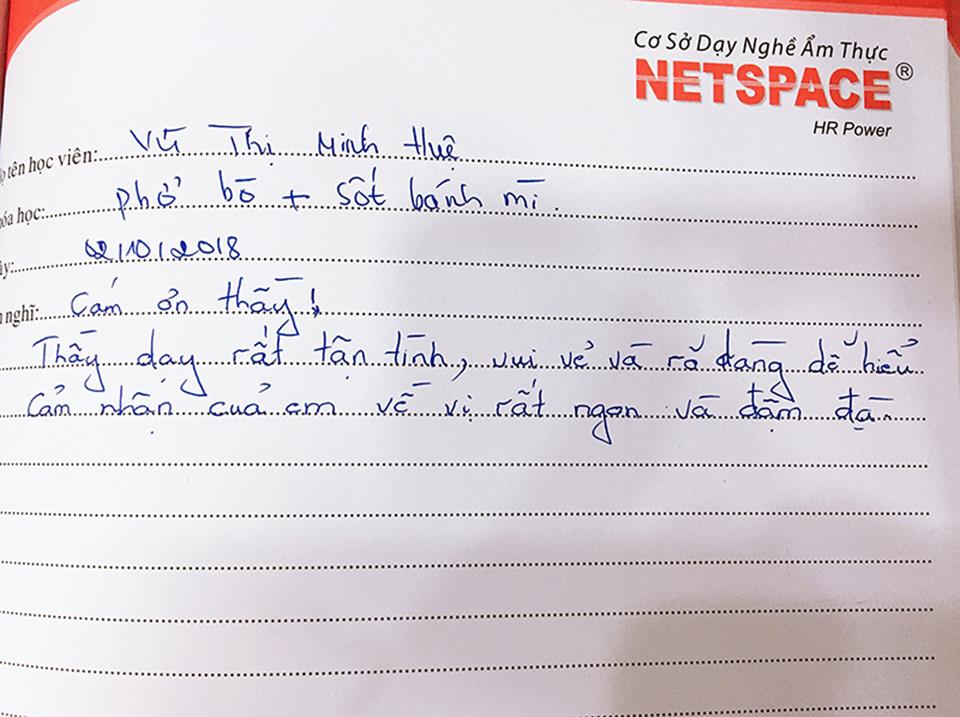 Cơ Sở Dạy Nghề Ẩm Thực
NETSPACE®
HR Power
ọ tên học viên: Vũ Thị Minh Huệ
hóa học: Phở bò + sốt bánh mì.
ày: 02/10/2018
m nghĩ: Cám ơn thầy!
Thầy dạy rất tận tình, vui vẻ và rõ dàng dễ hiểu
Cảm nhận cuả em về vị rất ngon và đậm đà.